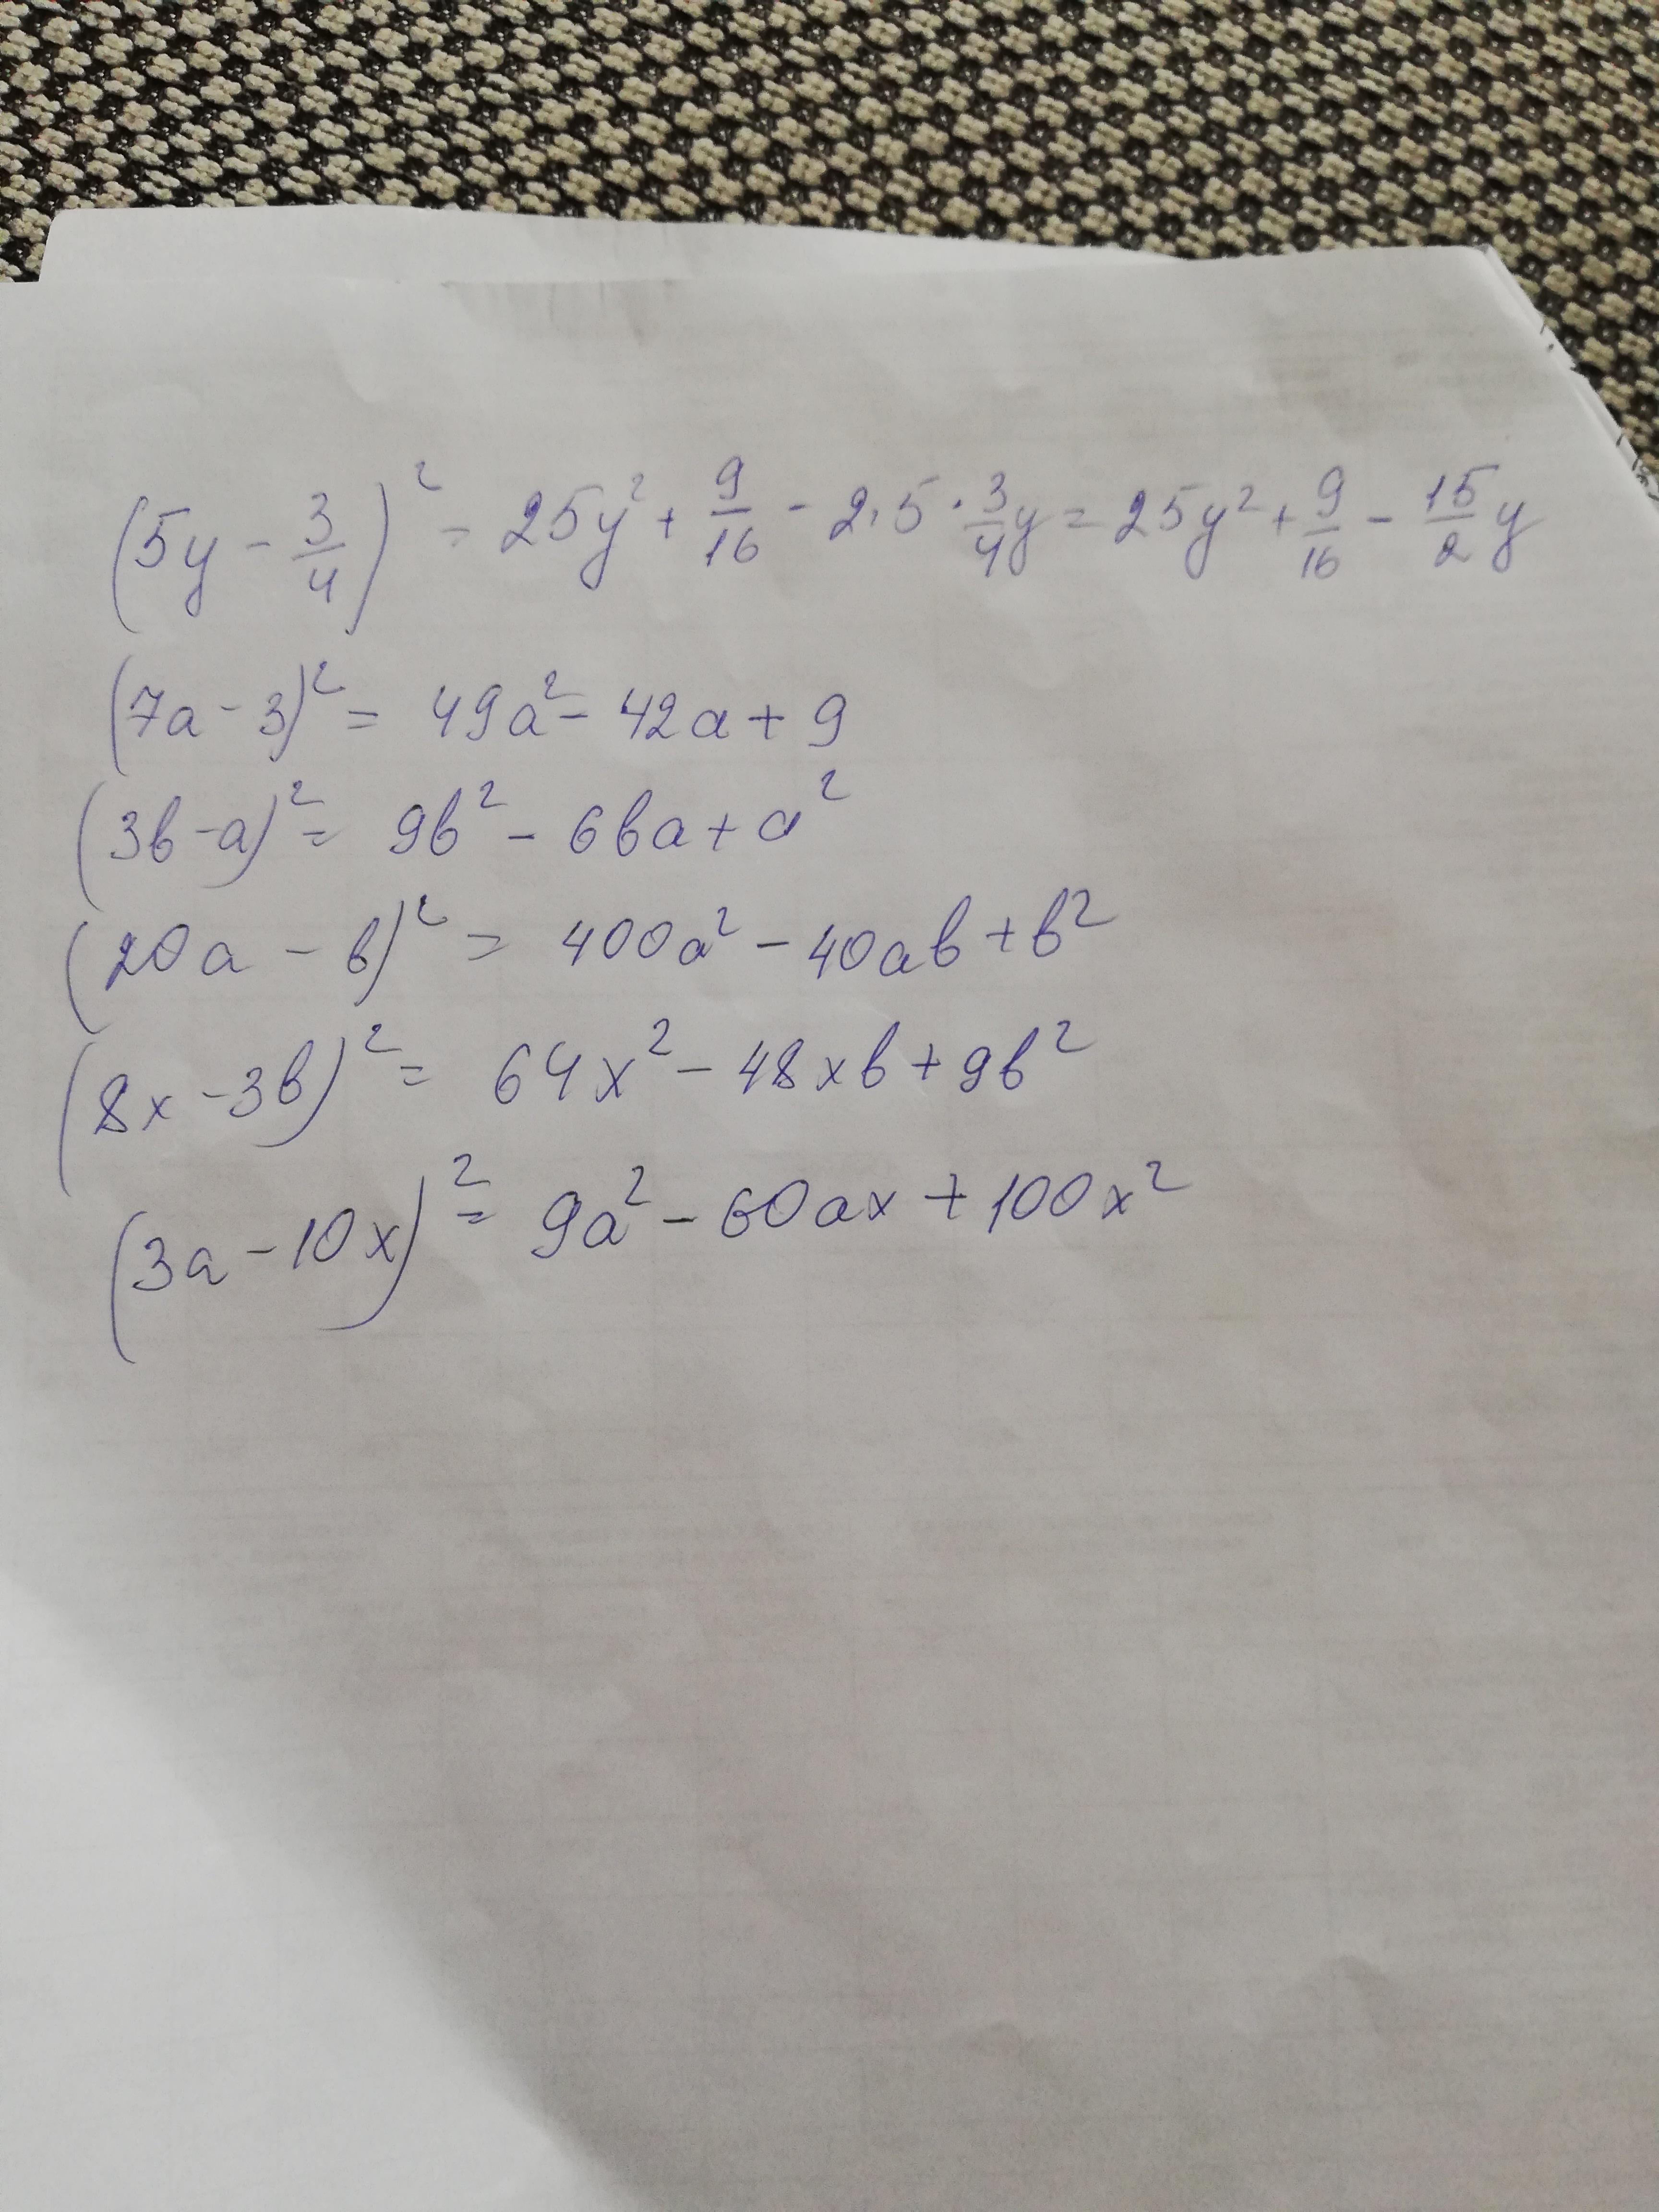 (5y - 3/4)² = 25y² + 9/16 - 2·5·3/4y = 25y² + 9/16 - 15/2y
(7a - 3)² = 49a² - 42a + 9
(3b - a)² = 9b² - 6ba + a²
(20a - b)² = 400a² - 40ab + b²
(8x - 3b)² = 64x² - 48xb + 9b²
(3a - 10x)² = 9a² - 60ax + 100x²